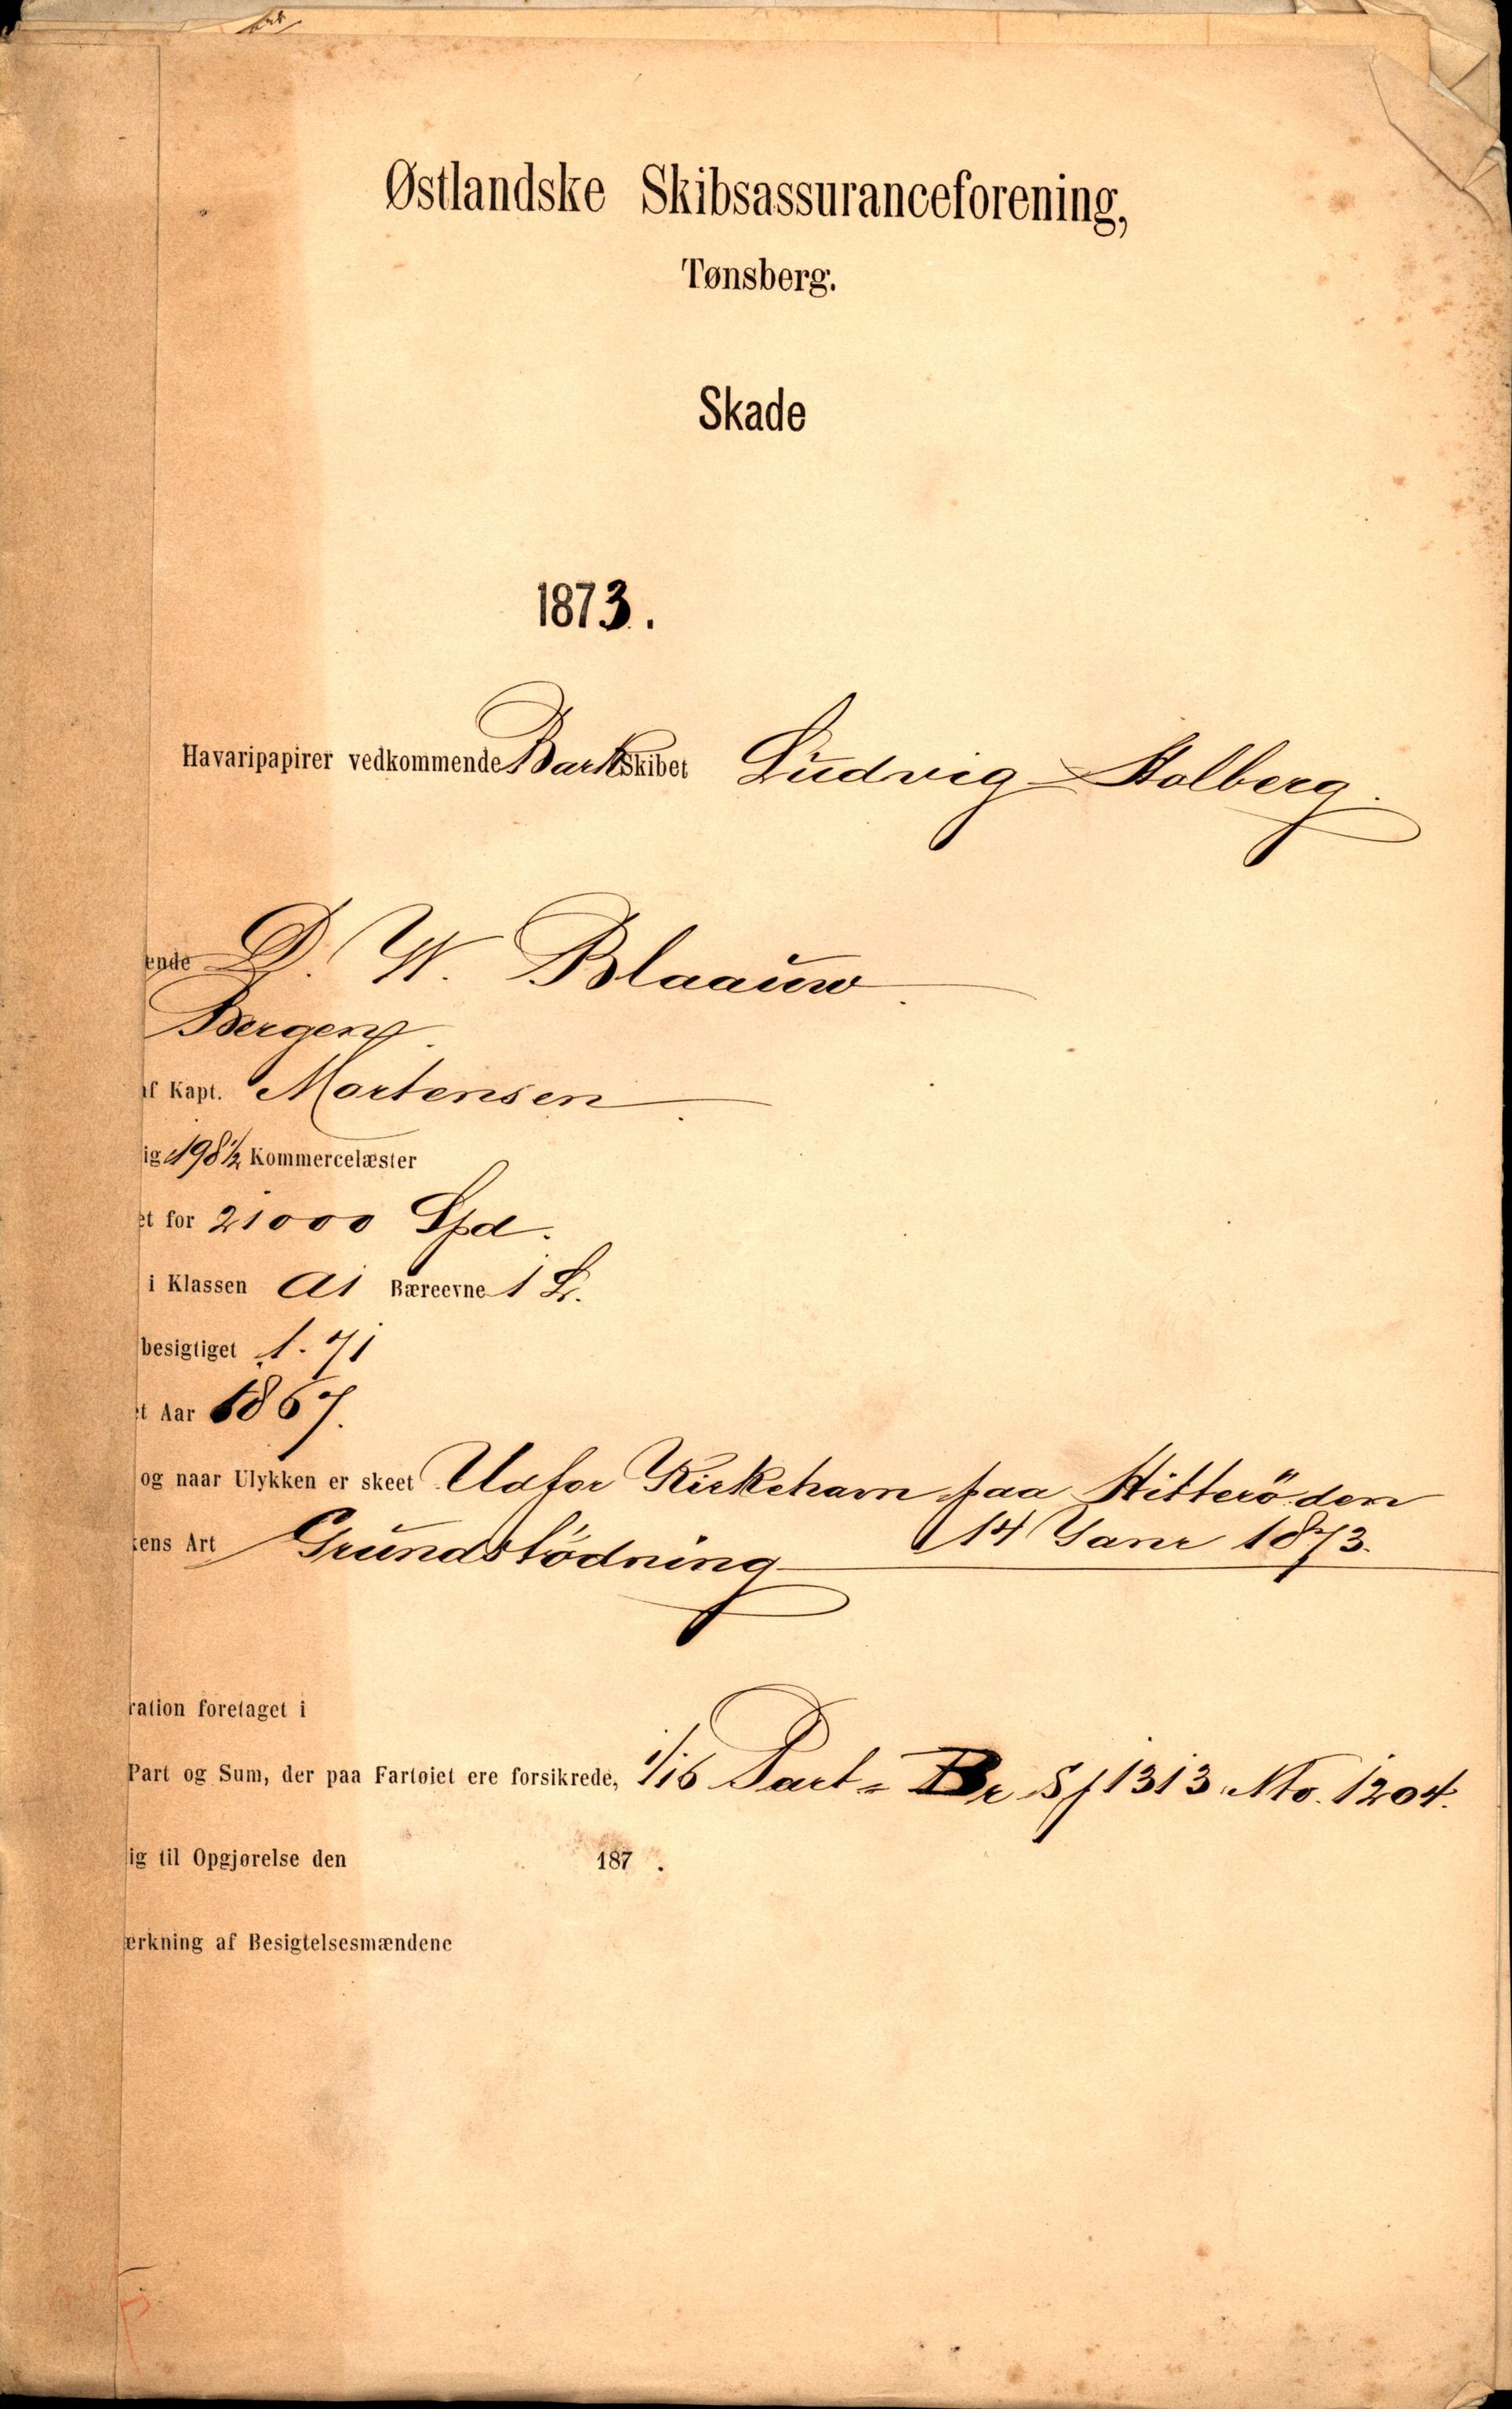 Østlandske Skibsassuranceforening,
Tønsberg.
Skade
1873.
Havaripapirer vedkommende Bark Skibet Ludvig Holberg.
ende D. W. Blaauw.
Bergen.
af Kapt. Mortensen.
ig 198 1/2 Kommercelæster
et for 21000 Spd.
i Klassen A1 Bæreevne 1 L.
besigtiget 1. 71
et Aar 1867.
og naar Ulykken er skeet Udfor Kirkehavn paa Hitterö den
14 Janr 1873.
kens Art Grundstödning
ration foretaget i
Part og Sum, der paa Fartøiet ere forsikrede, 1/16 Part = Br Sp 1313 Nto. 1204.
ig til Opgjørelse den 187 .
ærkning af Besigtelsesmændene